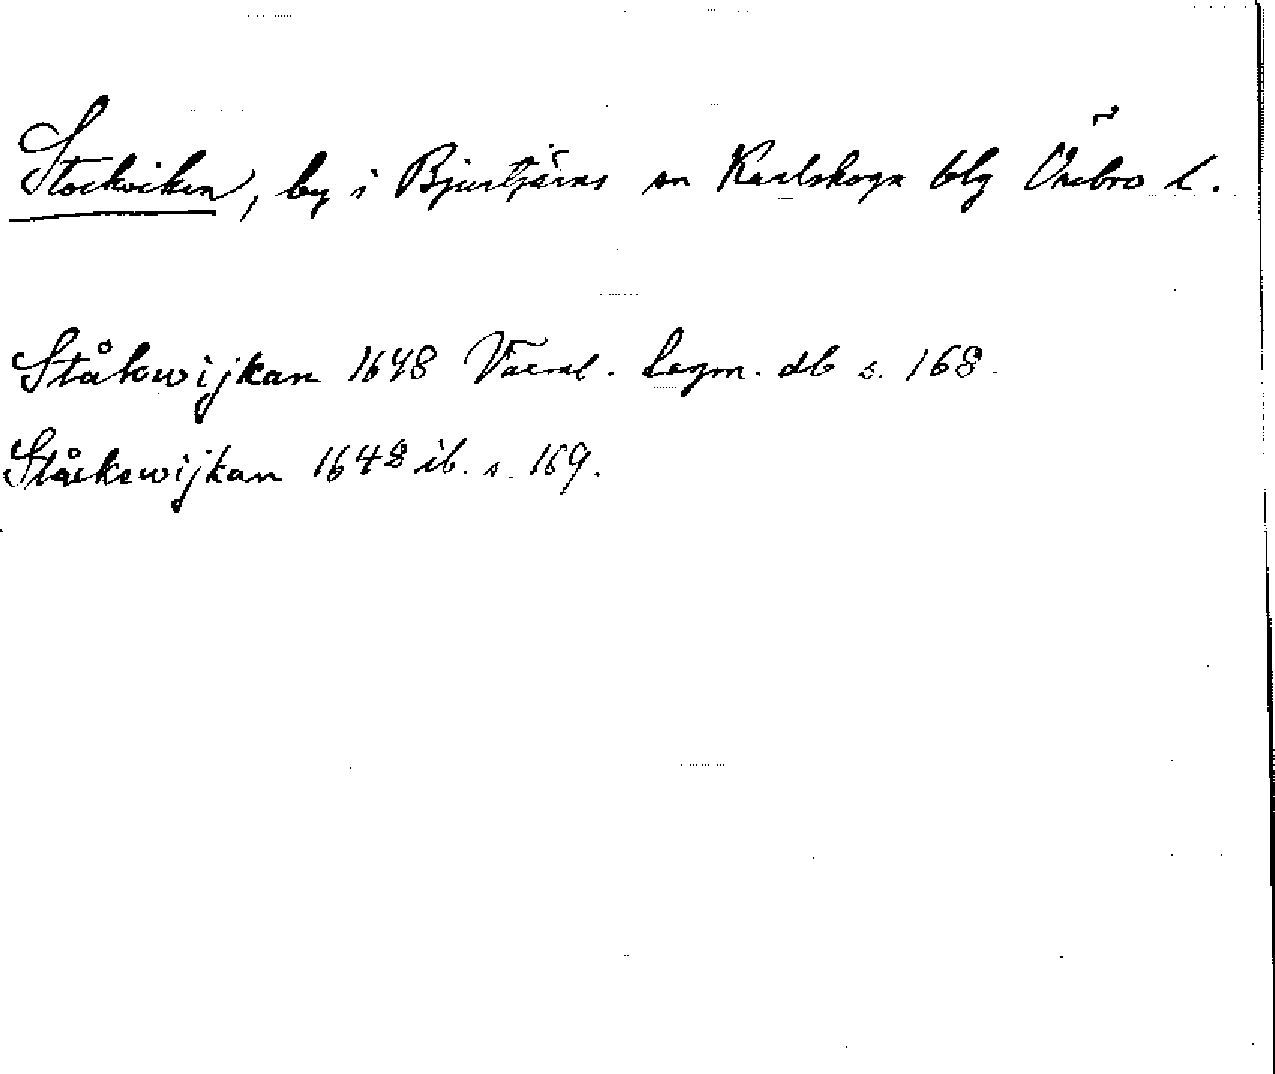 Stockviken, by i Bjurtjärns sn Karlskoga blg Örebro L.
Ståkwijkan 1648 Värml. Lagm. db s. 168.
Ståckewijkan 1648 ib. s. 169.